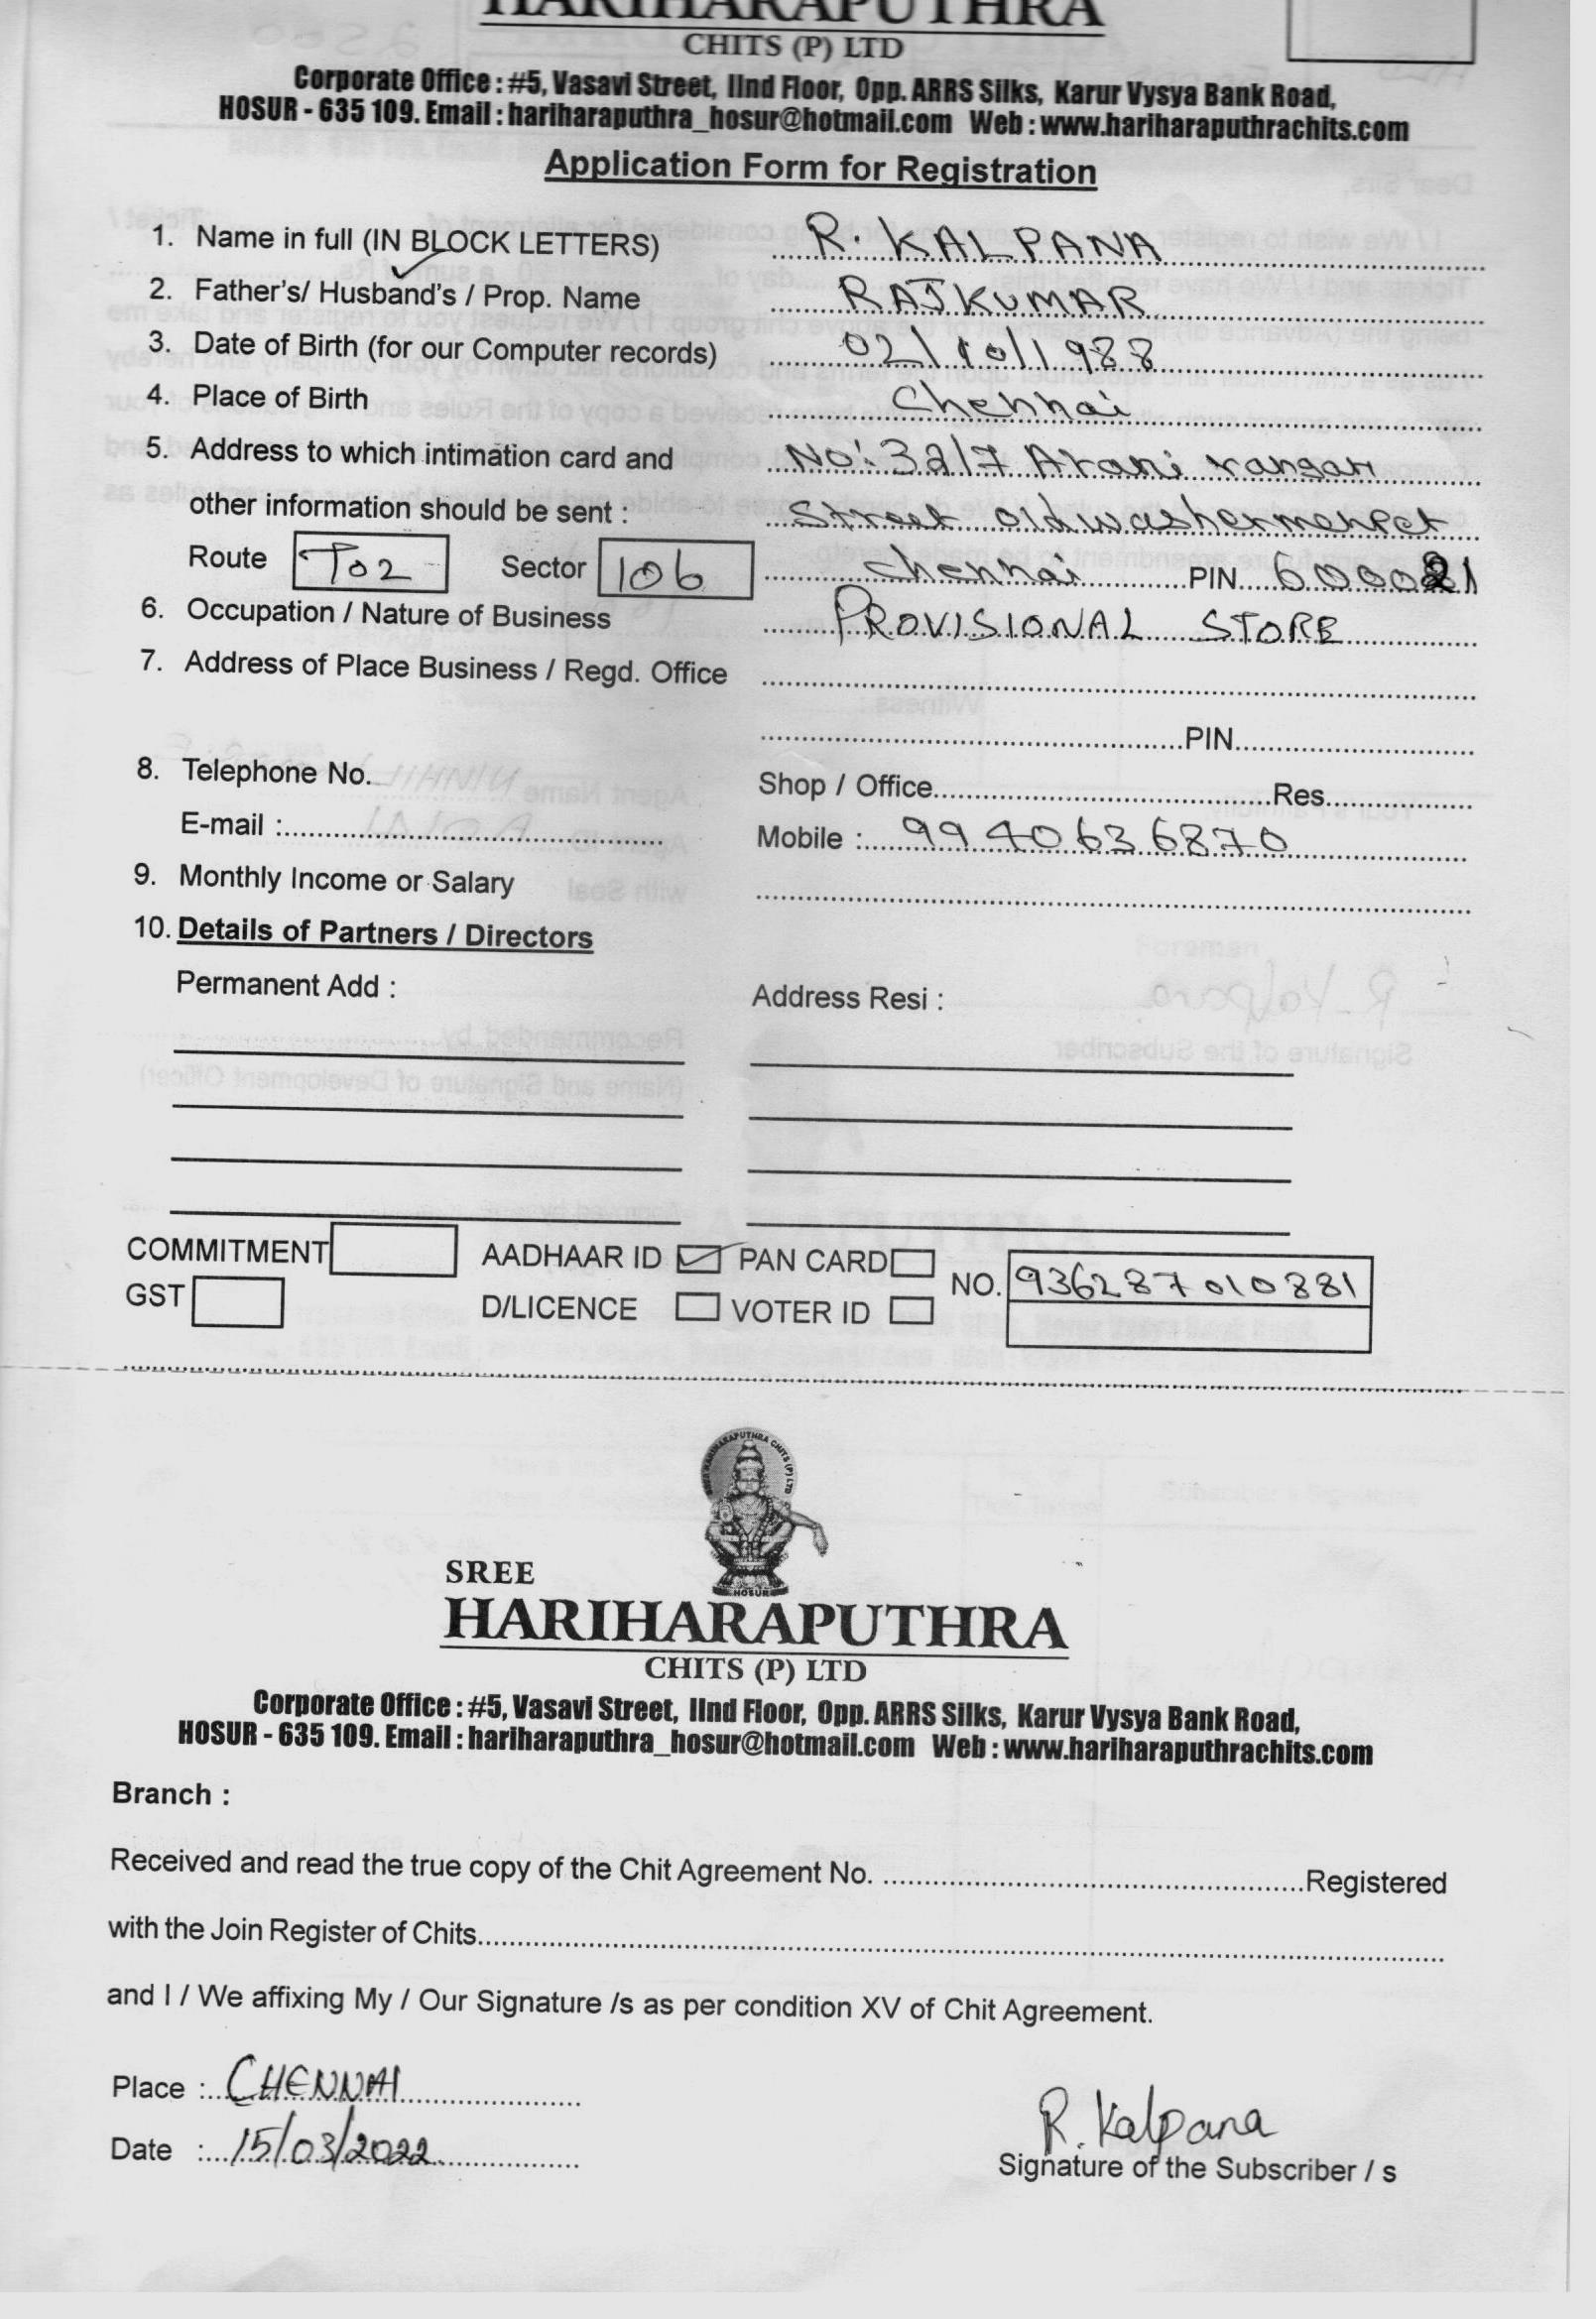 HARIHARAPUTHRA
CHITS (P) LTD
Corporate Office : #5, Vasavi Street, IInd Floor, Opp. ARRS Silks, Karur Vysya Bank Road,
HOSUR - 635 109. Email : hariharaputhra_hosur@hotmail.com Web : www.hariharaputhrachits.com
Application Form for Registration
1. Name in full (IN BLOCK LETTERS) R. KALPANA
2. Father's/ Husband's / Prop. Name RAJKUMAR
3. Date of Birth (for our Computer records) 02/10/1988
4. Place of Birth Chennai
5. Address to which intimation card and No: 32/7 Arani rangan
other information should be sent : Street oldwashermenpet
Route T02 Sector 106 chennai PIN 600021
6. Occupation / Nature of Business PROVISIONAL STORE
7. Address of Place Business / Regd. Office
PIN
8. Telephone No. Shop / Office Res.
E-mail : Mobile : 9940636870
9. Monthly Income or Salary
10. Details of Partners / Directors
Permanent Add : Address Resi :
COMMITMENT AADHAAR ID PAN CARD NO. 936287010881
GST D/LICENCE VOTER ID
SREE HARIHARAPUTHRA CHITS (P) LTD
HOSUR
SREE
HARIHARAPUTHRA
CHITS (P) LTD
Corporate Office : #5, Vasavi Street, IInd Floor, Opp. ARRS Silks, Karur Vysya Bank Road,
HOSUR - 635 109. Email : hariharaputhra_hosur@hotmail.com Web : www.hariharaputhrachits.com
Branch :
Received and read the true copy of the Chit Agreement No. Registered
with the Join Register of Chits
and I / We affixing My / Our Signature /s as per condition XV of Chit Agreement.
Place : CHENNAI
Date : 15/03/2022
R. Kalpana
Signature of the Subscriber / s